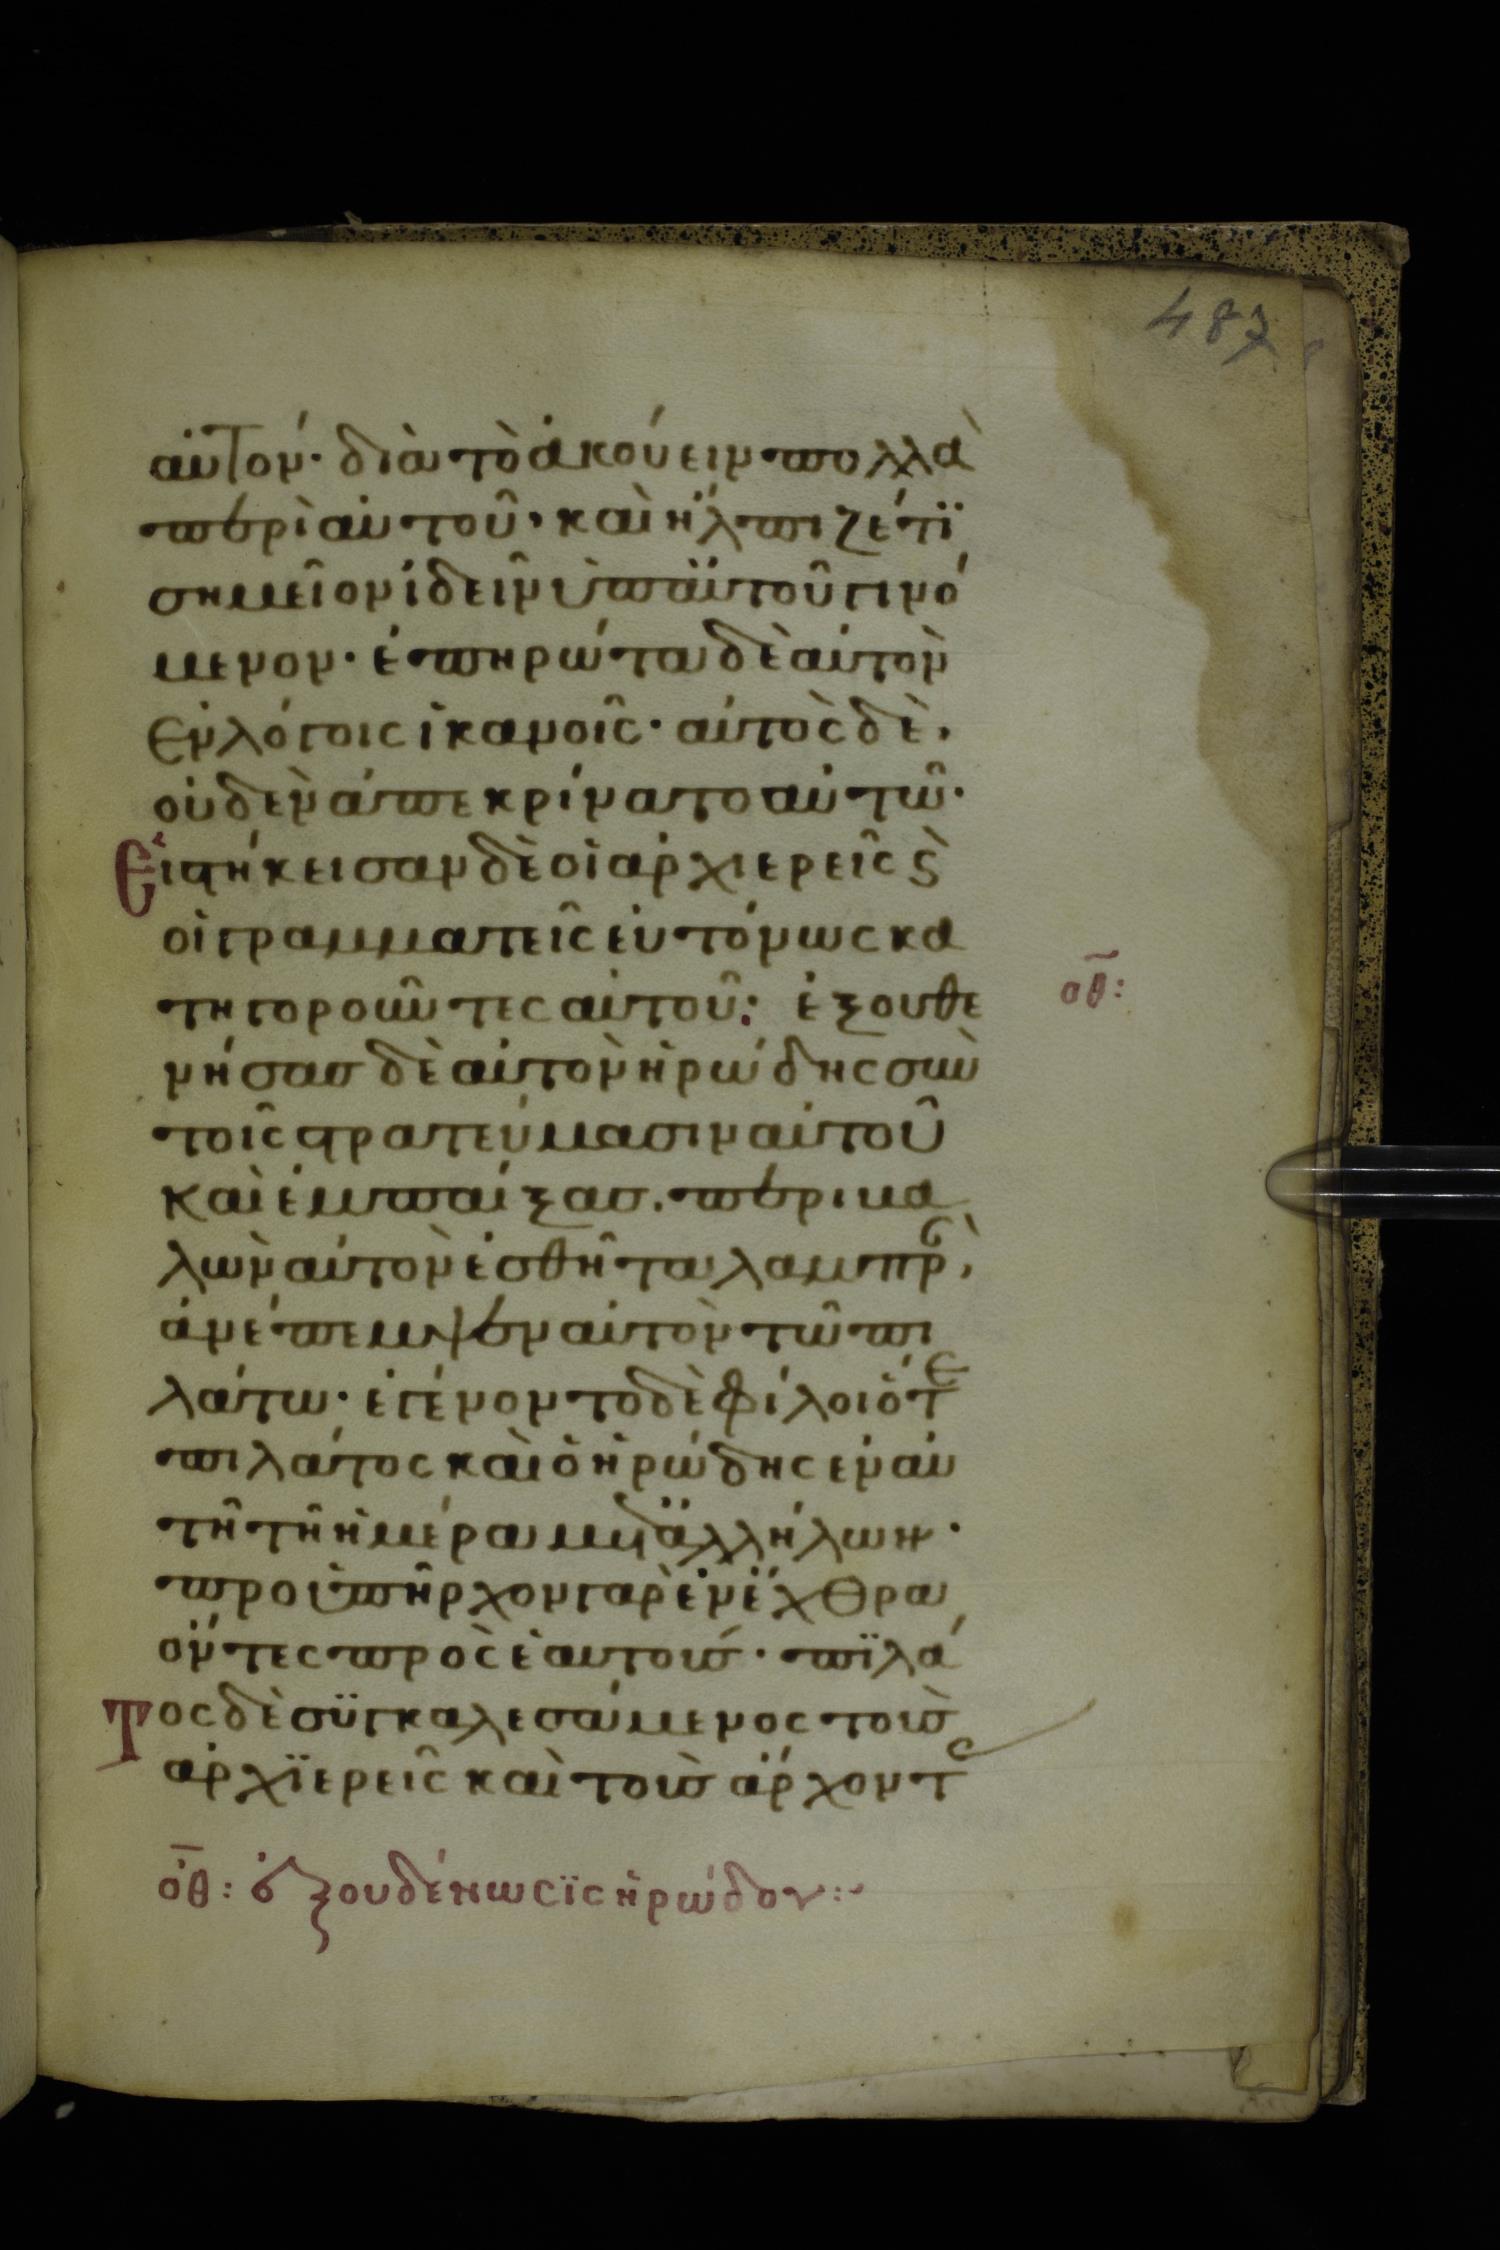 487
αὐτόν· διὰ τὸ ἀκούειν πολλὰ
περὶ αὐτοῦ· καὶ ἤλπιζέ τϊ
σημεῖον ἰδεῖν ὑπ αὐτοῦ γινό
μενον· ἐπηρώτα δὲ αὐτὸν
ἐν λόγοις ἱκανοῖς· αὐτὸς δὲ,
οὐδὲν ἀπεκρίνατο αὐτῶ·
Εἱστήκεισαν δὲ οἱ ἀρχιερεῖς ϛ̀
οἱ γραμματεῖς εὐτόνως κα
τηγοροῦντες αὐτοῦ: ἐξουθε
νήσας δὲ αὐτὸν ἡρώδης σὺν
τοῖς στρατεύμασιν αὐτοῦ
καὶ ἐμπαίξας. περιβα
λὼν αὐτὸν ἐσθῆτα λαμπρ,
ἀνέπεμψεν αὐτὸν τῶ πι
λάτω· ἐγένοντο δὲ φίλοι ὅ τε
πιλάτος καὶ ὁ ἡρώδης ἐν αὐ
τῆ τῆ ἡμέρα μετ ἀλλήλων·
προϋπῆρχον γὰρ ἐν ἔχθρα
ὄντες πρὸς ἑαυτούς· πϊλά
Τος δὲ σϋγκαλεσάμενος τοὺς
ἀρχϊερεῖς καὶ τοὺς ἄρχοντς
οθ:
οθ: ἐξουδένωσϊς ἡρώδου:~